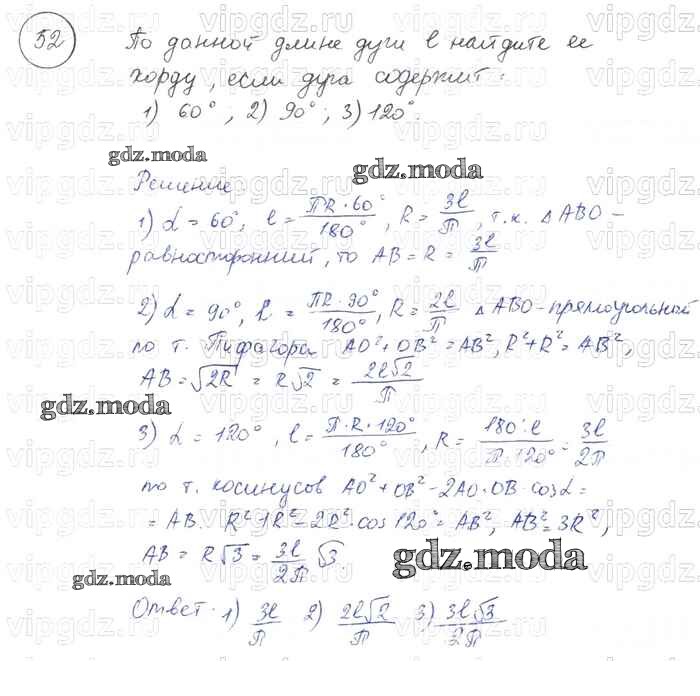 52
По данной длине дуги l найдите ее
хорду, если дуга содержит:
1) 60°; 2) 90°; 3) 120°.
gdz.moda
gdz.moda
Решение
1) α = 60°, l = πR·60°/180°, R = 3l/π, т.к. △ABO –
равносторонний, то AB = R = 3l/π
2) α = 90°, l = πR·90°/180°, R = 2l/π △ABO – прямоугольный
по т. Пифагора AO² + OB² = AB², R² + R² = AB²,
AB = √2R² = R√2 = 2l√2/π
gdz.moda
3) α = 120°, l = π·R·120°/180°, R = 180°·l/π·120° = 3l/2π
по т. косинусов AO² + OB² – 2AO·OB·cosα =
= AB. R² + R² – 2R²·cos120° = AB², AB² = 3R²,
AB = R√3 = 3l/2π √3.
gdz.moda
gdz.moda
Ответ. 1) 3l/π 2) 2l√2/π 3) 3l√3/2π